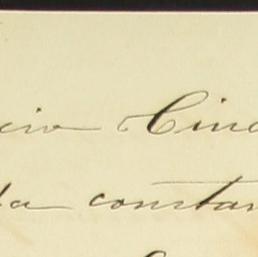 cio Cinc
da constan